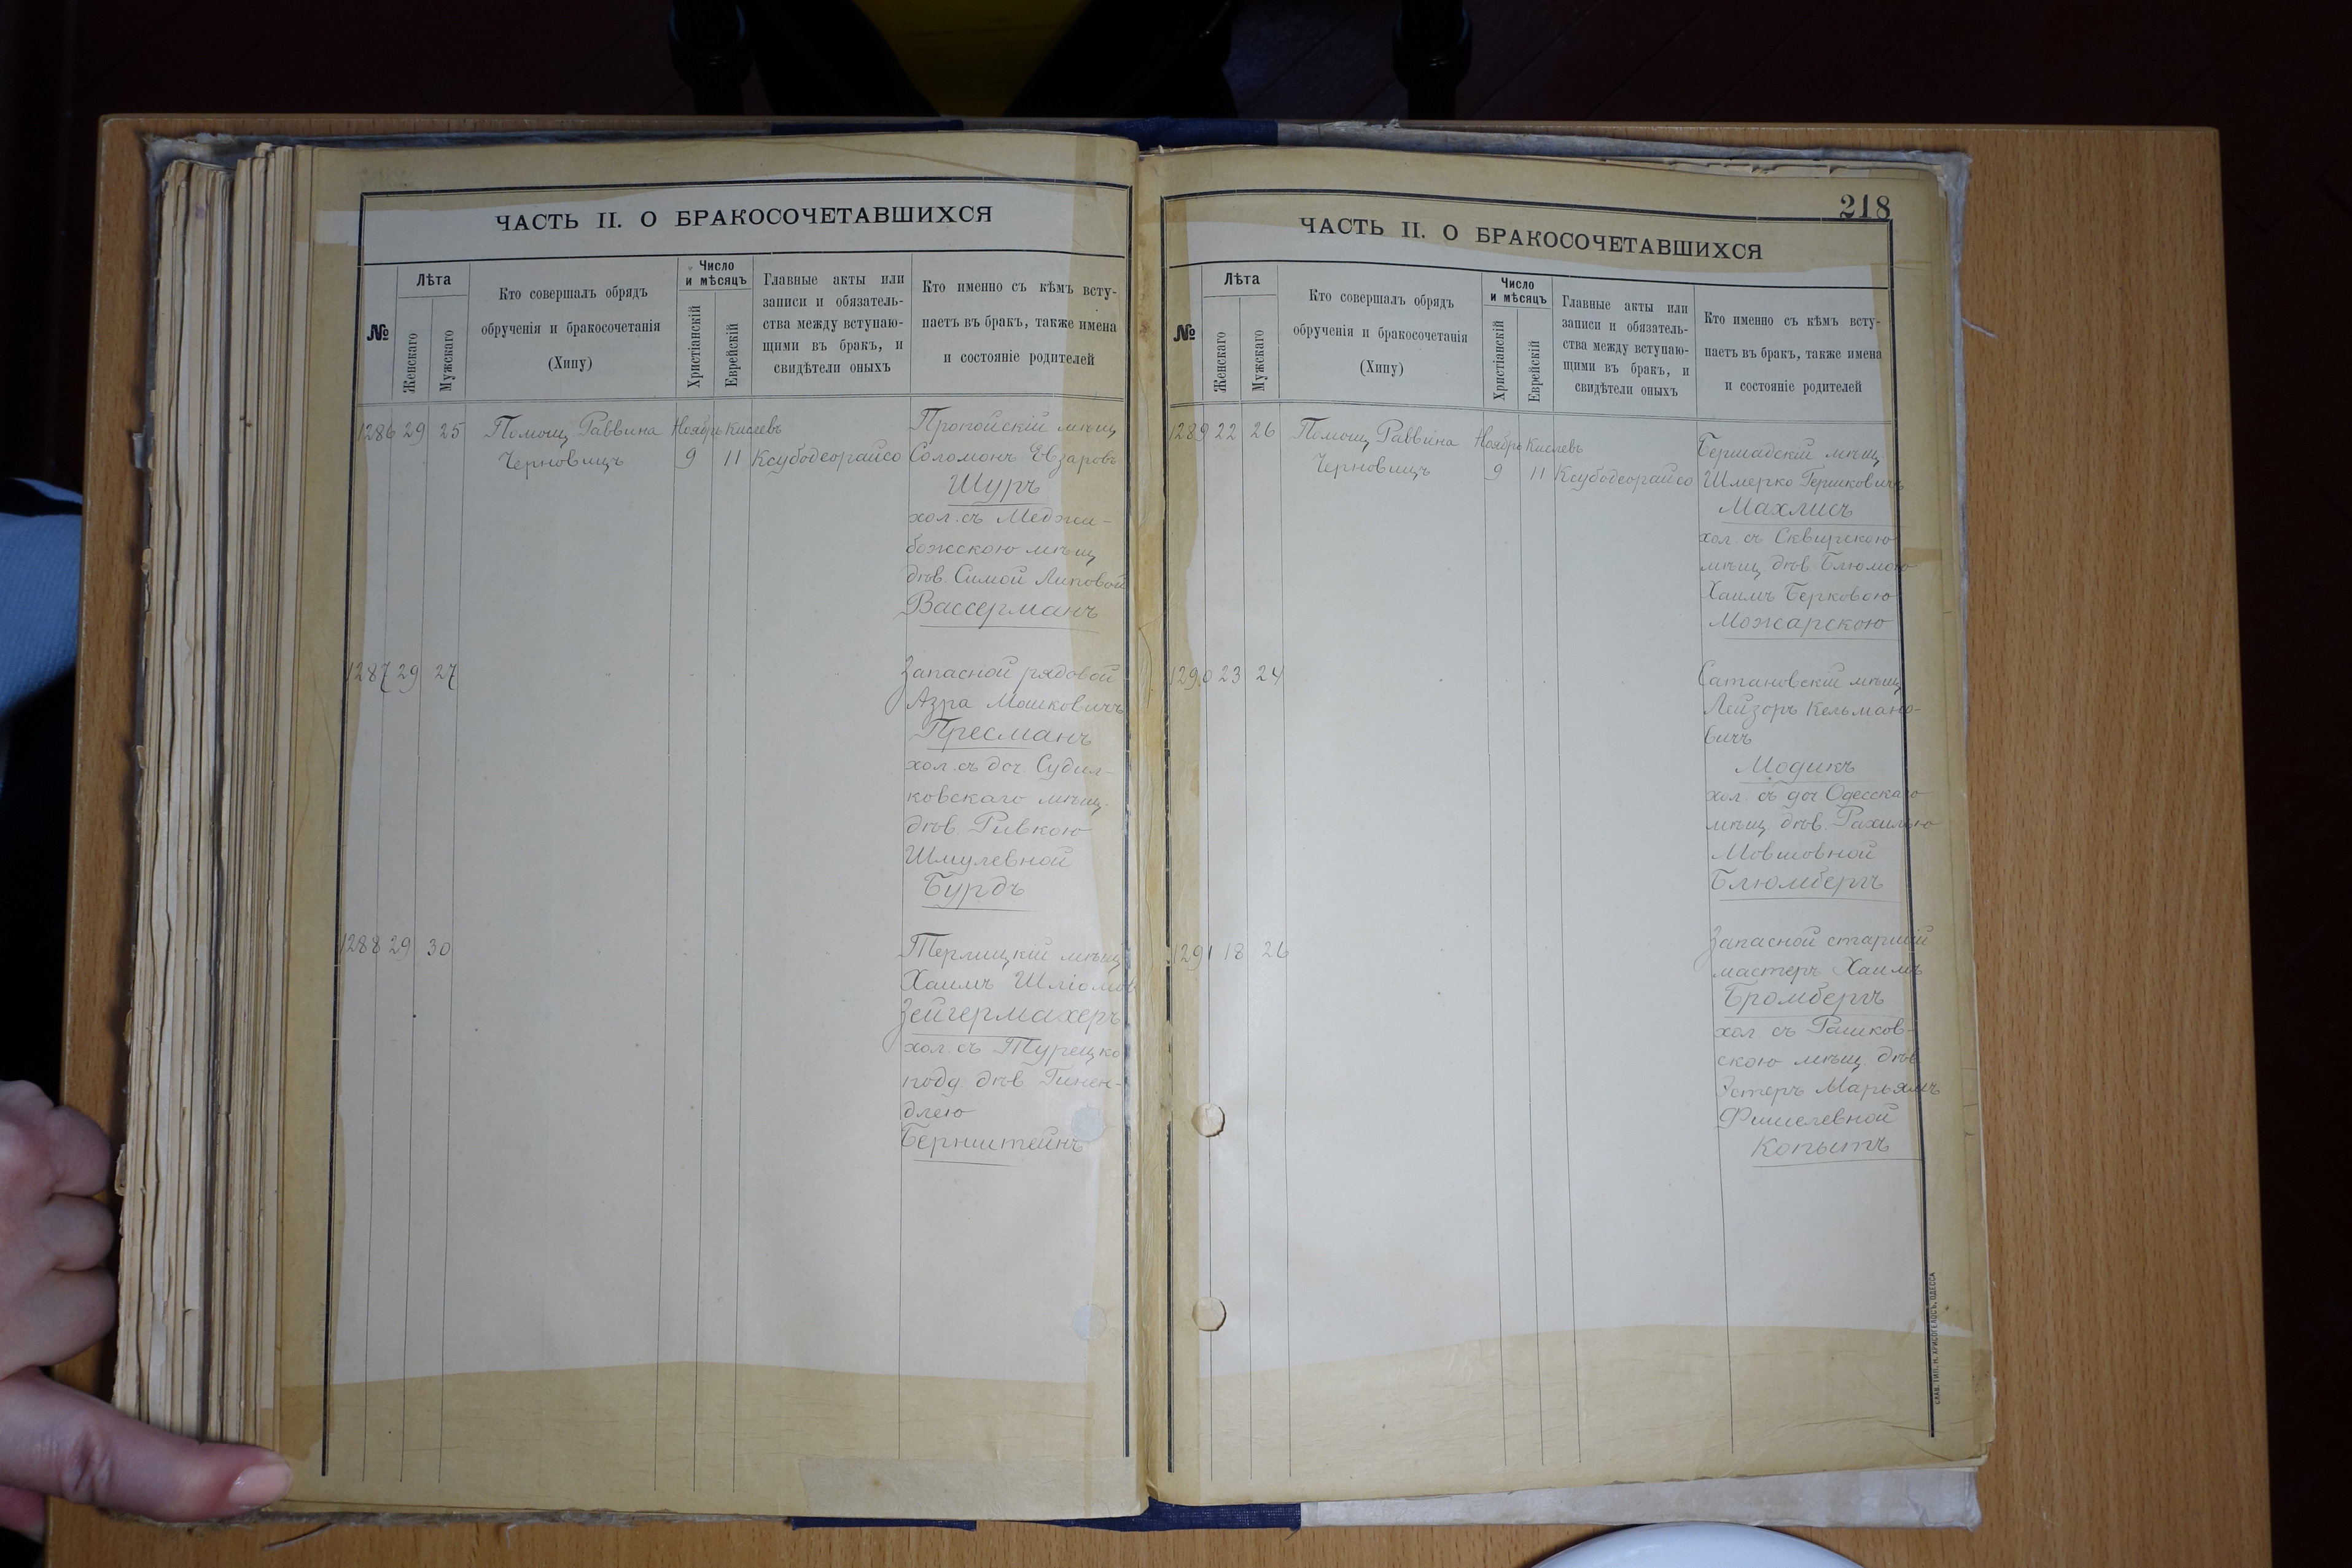 ЧАСТЬ II. О БРАКОСОЧЕТАВШИХСЯ
№
Лѣта
Женскаго
Мужскаго
Кто совершалъ обрядъ
обрученія и бракосочетанія
(Хипу)
Число
и мѣсяцъ
Христіанскій
Еврейскій
Главные акты или
записи и обязатель-
ства между вступаю-
щими въ бракъ, и
свидѣтели оныхъ
Кто именно съ кѣмъ всту-
паетъ въ бракъ, также имена
и состояніе родителей
1286 29 25 Помощ. Раввина Ноябрь Кислевъ Пропойскій мѣщ.
Черновицъ 9 11 Ксубодеорайсо Соломонъ Евзаровъ
Шуръ
хол. съ Меджи-
божскою мѣщ.
дѣв. Симой Липовой
Вассерманъ
1287 29 27 Запасной рядовой
Азра Мошковичъ
Пресманъ
хол. съ доч. Судил-
ковскаго мѣщ.
дѣв. Ривкою
Шмулевной
Бурдъ
1288 29 30 Терлицкій мѣщ.
Хаимъ Шліомов
Зейгермахеръ
хол. съ Турецко
подд. дѣв. Гинен-
длею
Бернштейнъ
218
ЧАСТЬ II. О БРАКОСОЧЕТАВШИХСЯ
№
Лѣта
Женскаго
Мужскаго
Кто совершалъ обрядъ
обрученія и бракосочетанія
(Хипу)
Число
и мѣсяцъ
Христіанскій
Еврейскій
Главные акты или
записи и обязатель-
ства между вступаю-
щими въ бракъ, и
свидѣтели оныхъ
Кто именно съ кѣмъ всту-
паетъ въ бракъ, также имена
и состояніе родителей
1289 22 26 Помощ. Раввина Ноябрь Кислевъ Бершадскій мѣщ.
Черновицъ 9 11 Ксубодеорайсо Шмерко Гершковичъ
Махлисъ
хол. съ Сквирскою
мѣщ. дѣв. Блюмою
Хаимъ Берковою
Можарскою
1290 23 24 Сатановскій мѣщ.
Лейзоръ Кельмано-
вичъ
Модикъ
хол. съ доч. Одесскаго
мѣщ. дѣв. Рахилью
Мовшовной
Блюмбергъ
1291 18 26 Запасной старшій
мастеръ Хаимъ
Бромбергъ
хол съ Рашков-
скою мѣщ. дѣв.
Эстеръ Марьямъ
Фишелевной
Копытъ
СЛАВ. ТИП. М. ХРИСОГЕЛОСЪ, ОДЕССА